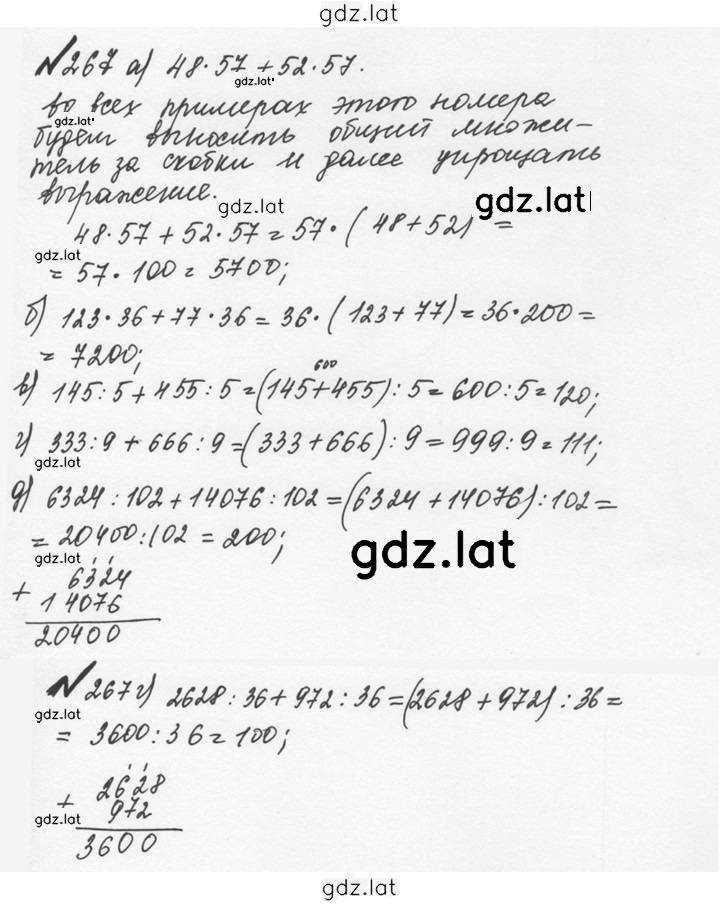 gdz.lat
№267 а) 48·57+52·57.
gdz.lat
во всех примерах этого номера
gdz.lat
будем выносить общий множи-
тель за скобки и далее упрощать
выражение.
gdz.lat
gdz.lat
48·57+52·57=57·(48+52)=
gdz.lat
=57·100=5700;
б) 123·36+77·36=36·(123+77)=36·200=
=7200;
600
в) 145:5+455:5=(145+455):5=600:5=120;
г) 333:9+666:9=(333+666):9=999:9=111;
gdz.lat
д) 6324:102+14076:102=(6324+14076):102=
=20400:102=200;
gdz.lat
gdz.lat
6324
+
14076
20400
№267 г) 2628:36+972:36=(2628+972):36=
gdz.lat
=3600:36=100;
2628
+
972
gdz.lat
3600
gdz.lat